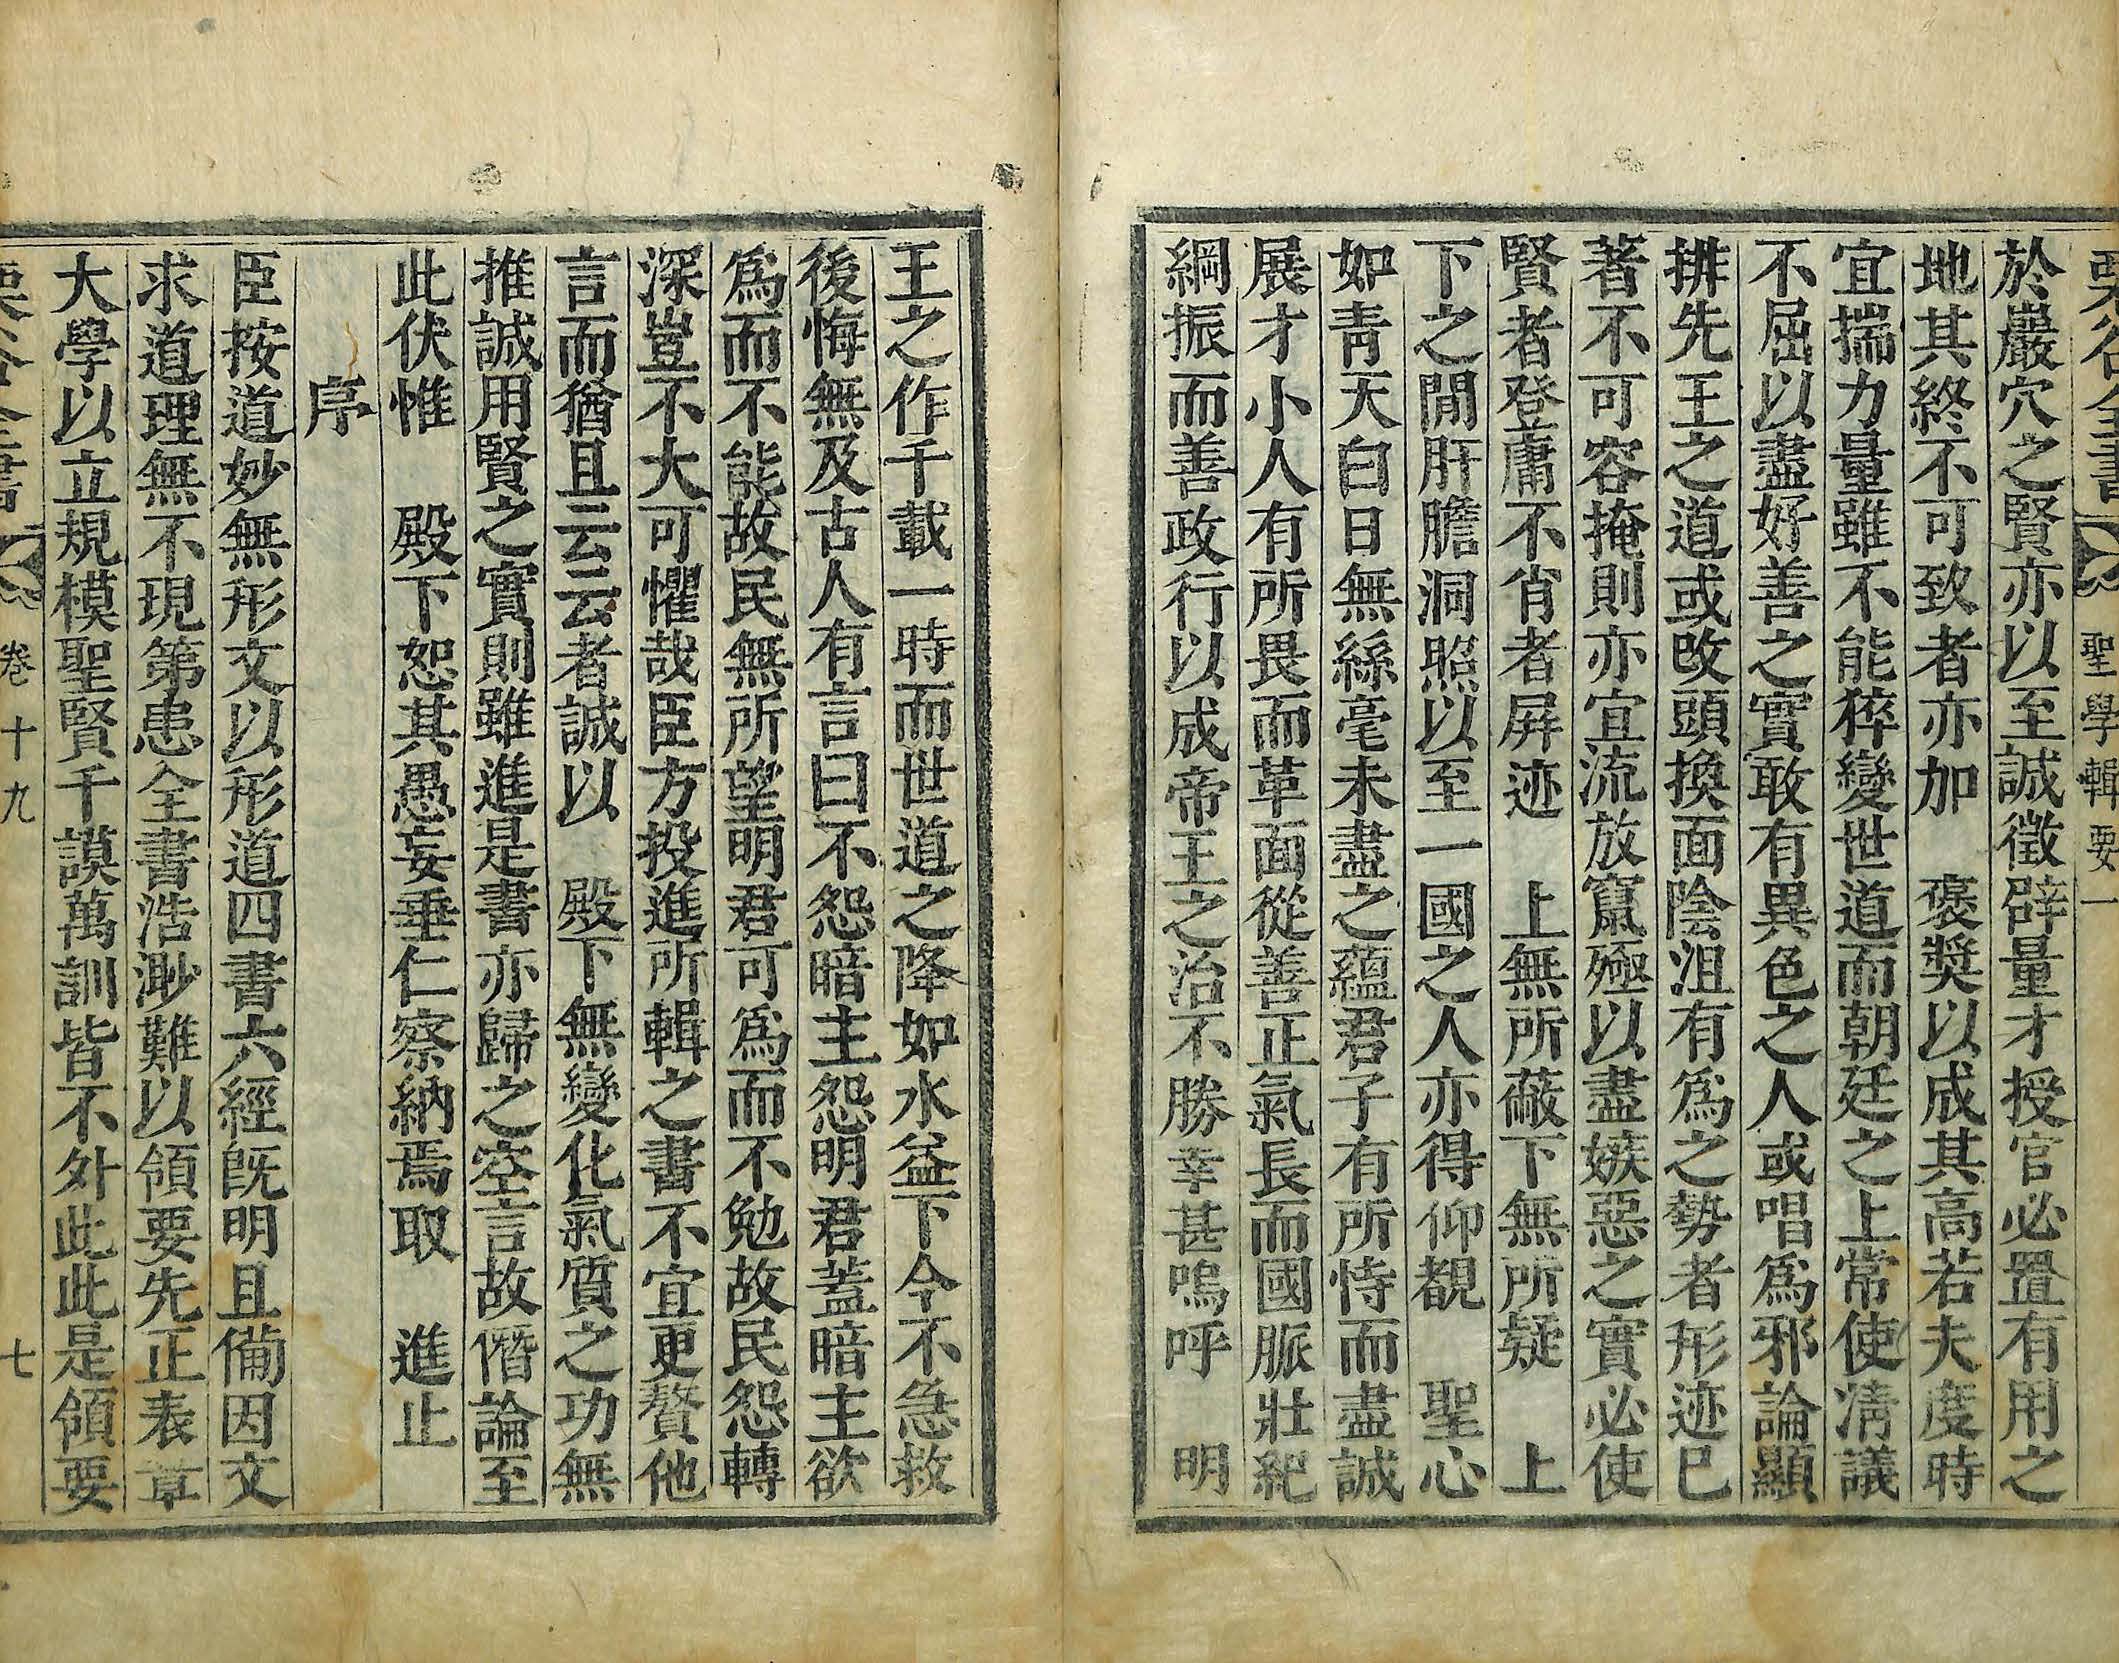 栗谷全書 聖學輯要一
於巖穴之賢亦以至誠徵辟量才授官必置有用之
地其終不可致者亦加 褒奬以成其高若夫度時
宜揣力量雖不能猝變世道而朝廷之上常使淸議
不屈以盡好善之實敢有異色之人或唱爲邪論顯
排先王之道或改頭換面陰沮有爲之勢者形迹已
著不可容掩則亦宜流放竄殛以盡嫉惡之實必使
賢者登庸不肖者屛迹 上無所蔽下無所疑 上
下之閒肝膽洞照以至一國之人亦得仰覩 聖心
如靑天白日無絲毫未盡之蘊君子有所恃而盡誠
展才小人有所畏而革面從善正氣長而國脈壯紀
綱振而善政行以成帝王之治不勝幸甚嗚呼 明
王之作千載一時而世道之降如水益下今不急救
後悔無及古人有言曰不怨暗主怨明君蓋暗主欲
爲而不能故民無所望明君可爲而不勉故民怨轉
深豈不大可懼哉臣方投進所輯之書不宜更贅他
言而猶且云云者誠以 殿下無變化氣質之功無
推誠用賢之實則雖進是書亦歸之空言故僭論至
此伏惟 殿下恕其愚妄垂仁察納焉取 進止
序
臣按道妙無形文以形道四書六經旣明且備因文
求道理無不現第患全書浩渺難以領要先正表章
大學以立規模聖賢千謨萬訓皆不外此此是領要
栗谷全書 卷十九 七